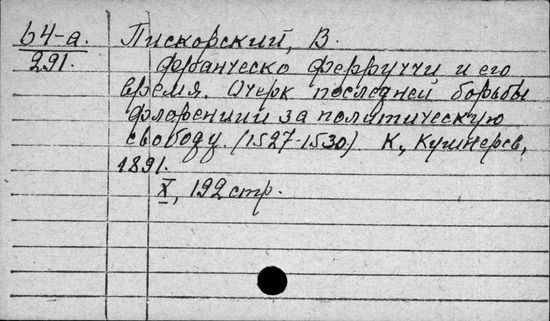 64-а. Пискорский, В.
291. Франческо Ферруччи и его
время. Очерк последней борьбы
Флоренции за политическую
свободу. (1527-1530) К., Кушнерев,
1891.
X, 192 стр.